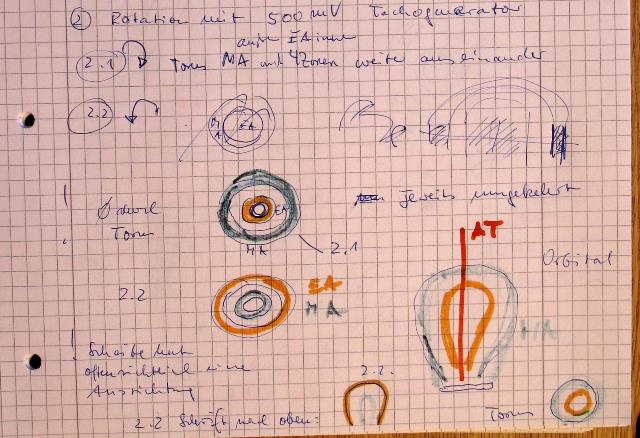 ② Rotation mit 500 mV Tachogenerator
außen EA innen
2.1 Torus MA mit 4 Zonen weiter auseinander
2.2
MA EA
jeweils umgekehrt
Torus
EA
MA
2.1
AT
Orbital
2.2
EA
MA
MA
! Scheibe hat
offensichtlich eine
Ausrichtung
2.2.
2.2 Schrift nach oben:
Torus